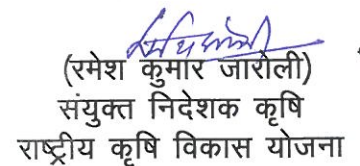 (रमेश कुमार जारोली)
संयुक्त निदेशक कृषि
राष्ट्रीय कृषि विकास योजना